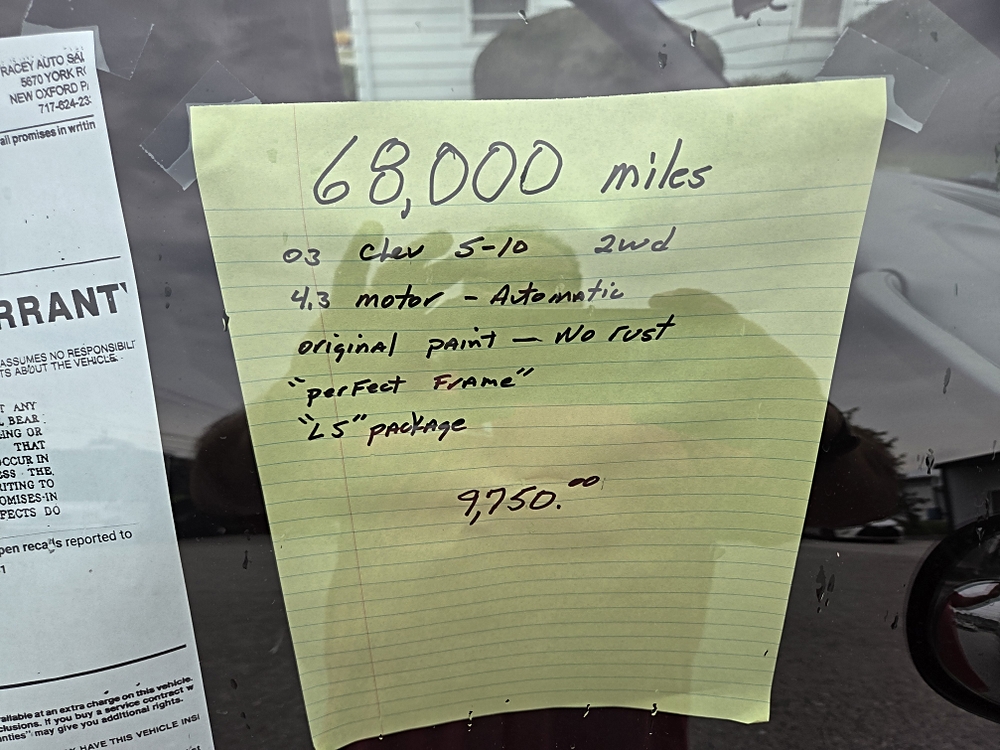 RACEY AUTO SAL
5670 YORK R
NEW OXFORD P
717-624-23
all promises in writin
RRANTY
ASSUMES NO RESPONSIBILI
TS ABOUT THE VEHICLE.
T ANY
BEAR
ING OR
THAT
OCCUR IN
ESS THE
RITING TO
OMISES IN
FECTS DO
pen recalls reported to
1
ailable at an extra charge on this vehicle.
clusions. If you buy a service contract w
nties" may give you additional rights.
HAVE THIS VEHICLE INS
68,000 miles
03 Chev S-10 2wd
4.3 motor - Automatic
original paint - No rust
"perfect Frame"
"LS" package
9,750.00